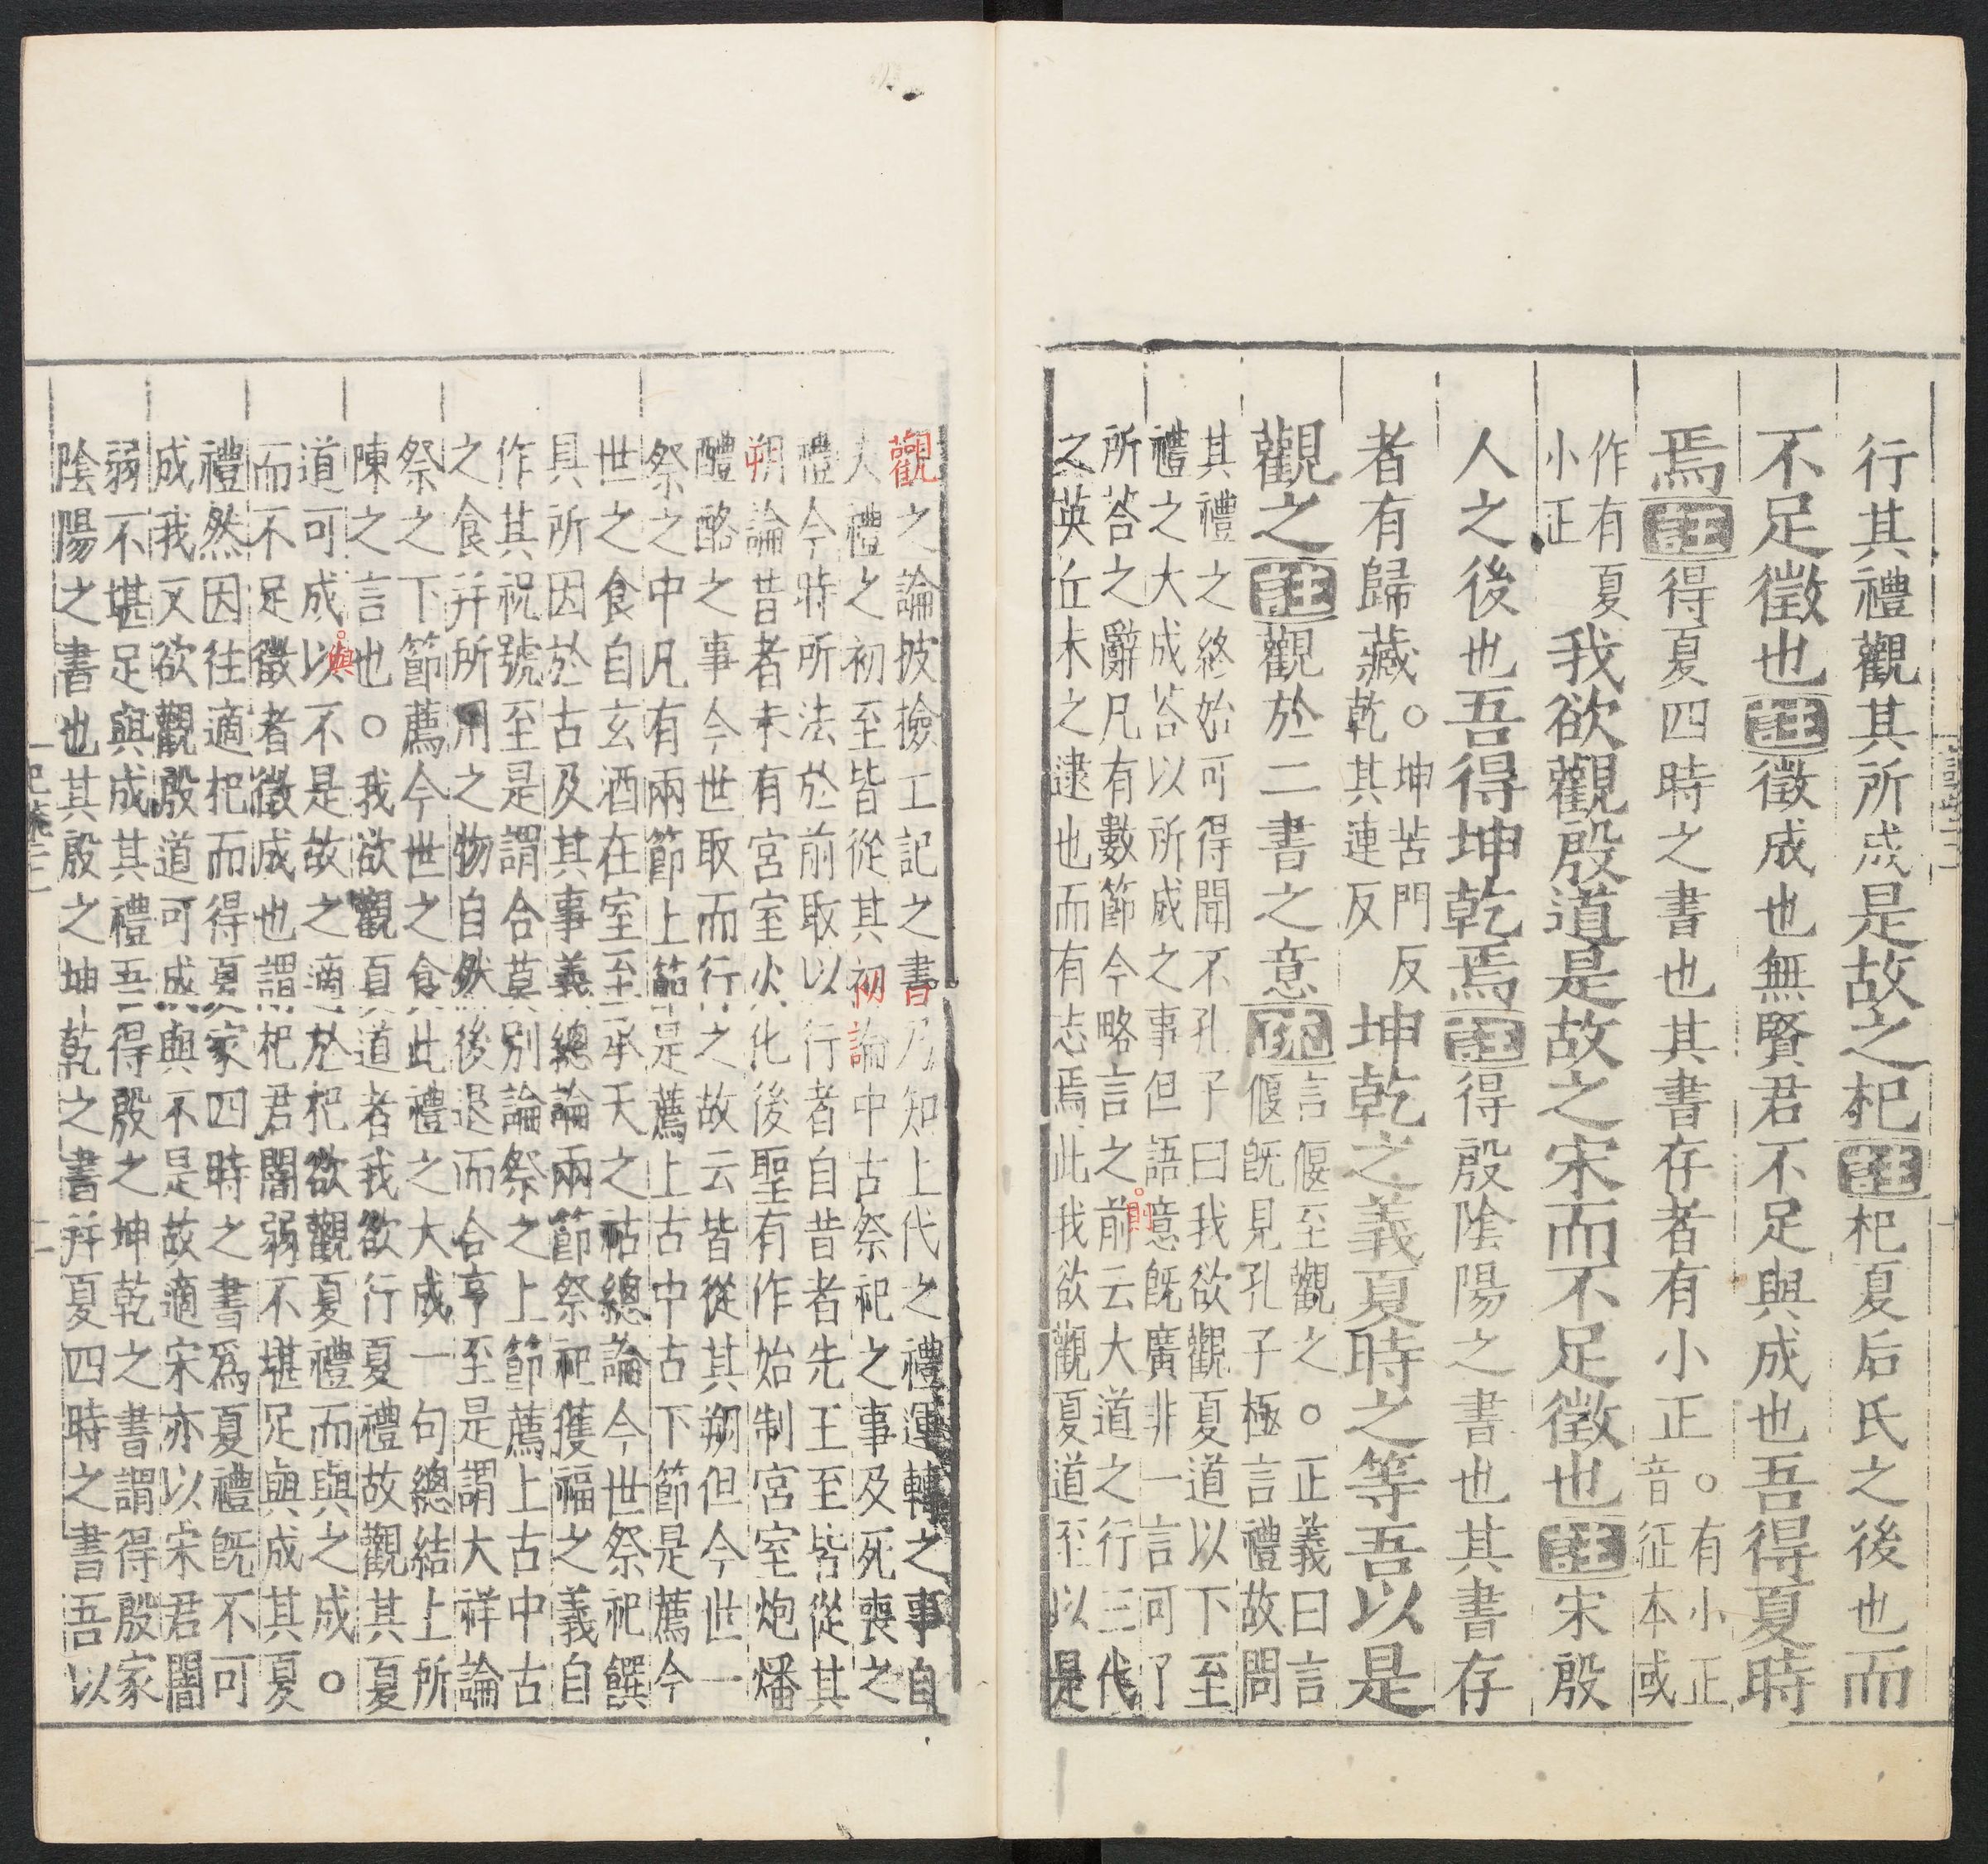 行其禮觀其所成是故之杞註杞夏后氏之後也而
不足徵也註徵成也無賢君不足與成也吾得夏時
焉註得夏四時之書也其書存者有小正。有小正音征本或
作有夏小正我欲觀殷道是故之宋而不足徵也註宋殷
人之後也吾得坤乾焉註得殷陰陽之書也其書存
者有歸藏。坤苦門反乾其連反坤乾之義夏時之等吾以是
觀之註觀於二書之意疏言偃至觀之。正義曰言偃旣見孔子極言禮故問
其禮之終始可得聞不孔子曰我欲觀夏道以下至
禮之大成荅以所成之事但語意旣廣非一言可了
所荅之辭凡有數節今略言之前云大道之行三代
。則
之英丘未之逮也而有志焉此我欲觀夏道至以是
觀之論披撿工記之書乃知上代之禮運轉之事自
夫禮之初至皆從其初論中古祭祀之事及死喪之
禮今時所法於前取以行者自昔者先王至皆從其
朔論昔者未有宮室火化後聖有作始制宮室炮燔
醴酪之事今世取而行之故云皆從其朔但今世一
祭之中凡有兩節上節是薦上古中古下節是薦今
世之食自玄酒在室至承天之祜總論今世祭祀饌
具所因於古及其事義總論兩節祭祀獲福之義自
作其祝號至是謂合莫別論祭之上節薦上古中古
之食幷所用之物自然後退而合亨至是謂大祥論
祭之下節薦今世之食此禮之大成一句總結上所
陳之言也○我欲觀夏道者我欲行夏禮故觀其夏
道可成以不是故之適於杞欲觀夏禮而與之成○
。與
而不足徵者徵成也謂杞君闇弱不堪足與成其夏
禮然因往適杞而得夏家四時之書爲夏禮旣不可
成我又欲觀殷道可成與不是故適宋亦以宋君闇
弱不堪足與成其禮吾得殷之坤乾之書謂得殷家
陰陽之書也其殷之坤乾之書幷夏四時之書吾以